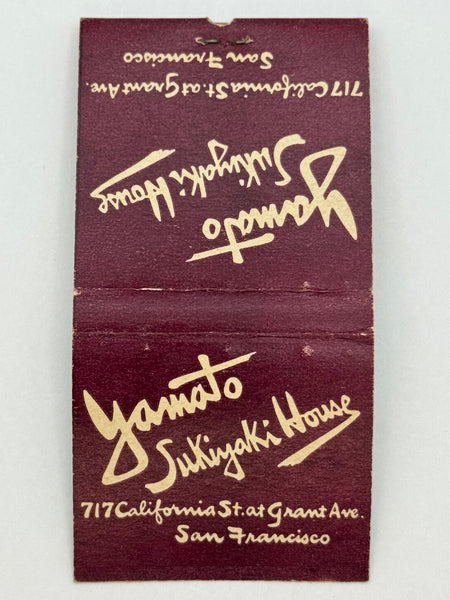 717 California St. at Grant Ave.
San Francisco
Yamato
Sukiyaki House
Yamato
Sukiyaki House
717 California St. at Grant Ave.
San Francisco